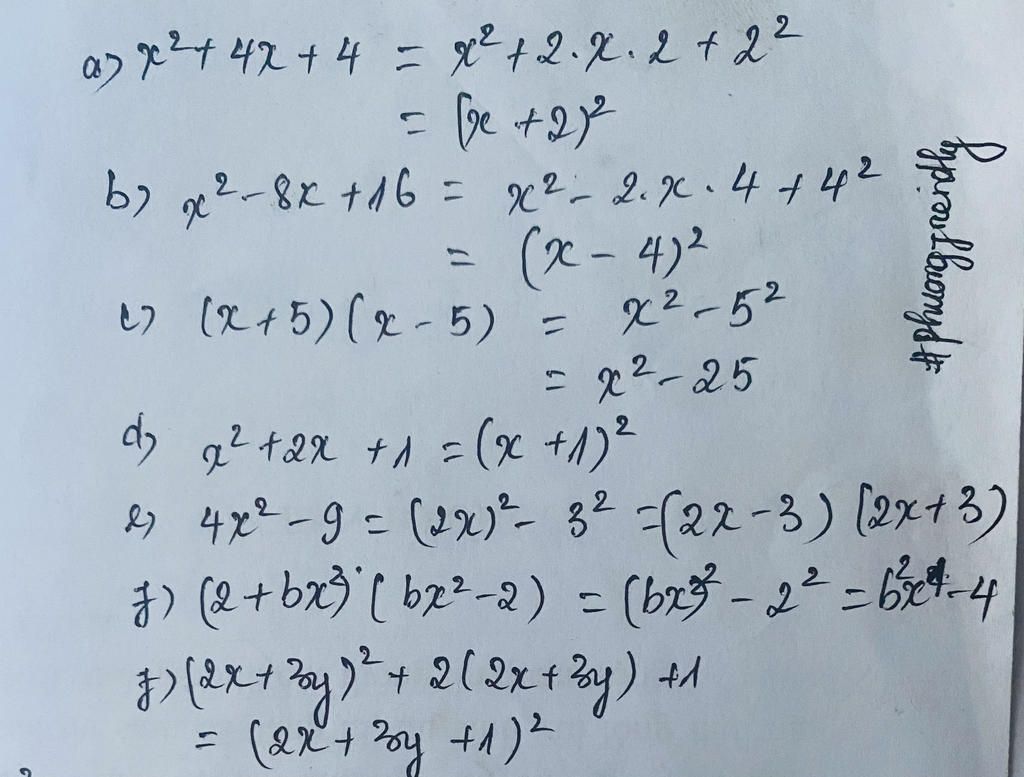 a) x² + 4x + 4 = x² + 2.x.2 + 2²
= (x + 2)²
b) x² - 8x + 16 = x² - 2.x.4 + 4²
= (x - 4)²
c) (x + 5)(x - 5) = x² - 5²
= x² - 25
d) x² + 2x + 1 = (x + 1)²
e) 4x² - 9 = (2x)² - 3² = (2x - 3)(2x + 3)
f) (2 + bx²)(bx² - 2) = (bx²)² - 2² = b²x⁴ - 4
f) (2x + 3y)² + 2(2x + 3y) + 1
= (2x + 3y + 1)²